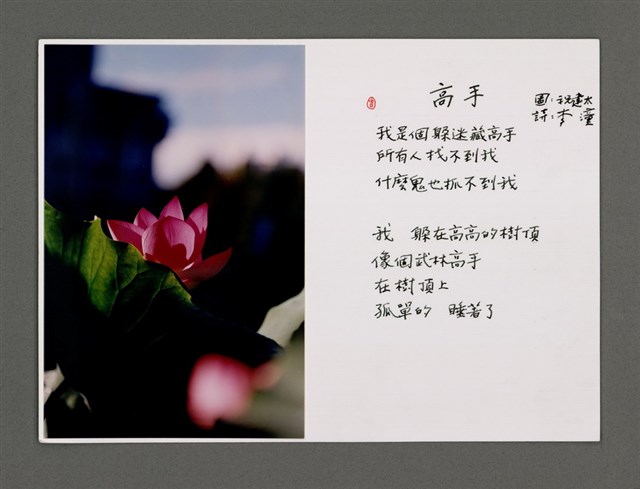 高手
圖：祝建太
詩：李潼
我是個躲迷藏高手
所有人找不到我
什麼鬼也抓不到我
我 躲在高高的樹頂
像個武林高手
在樹頂上
孤單的 睡著了